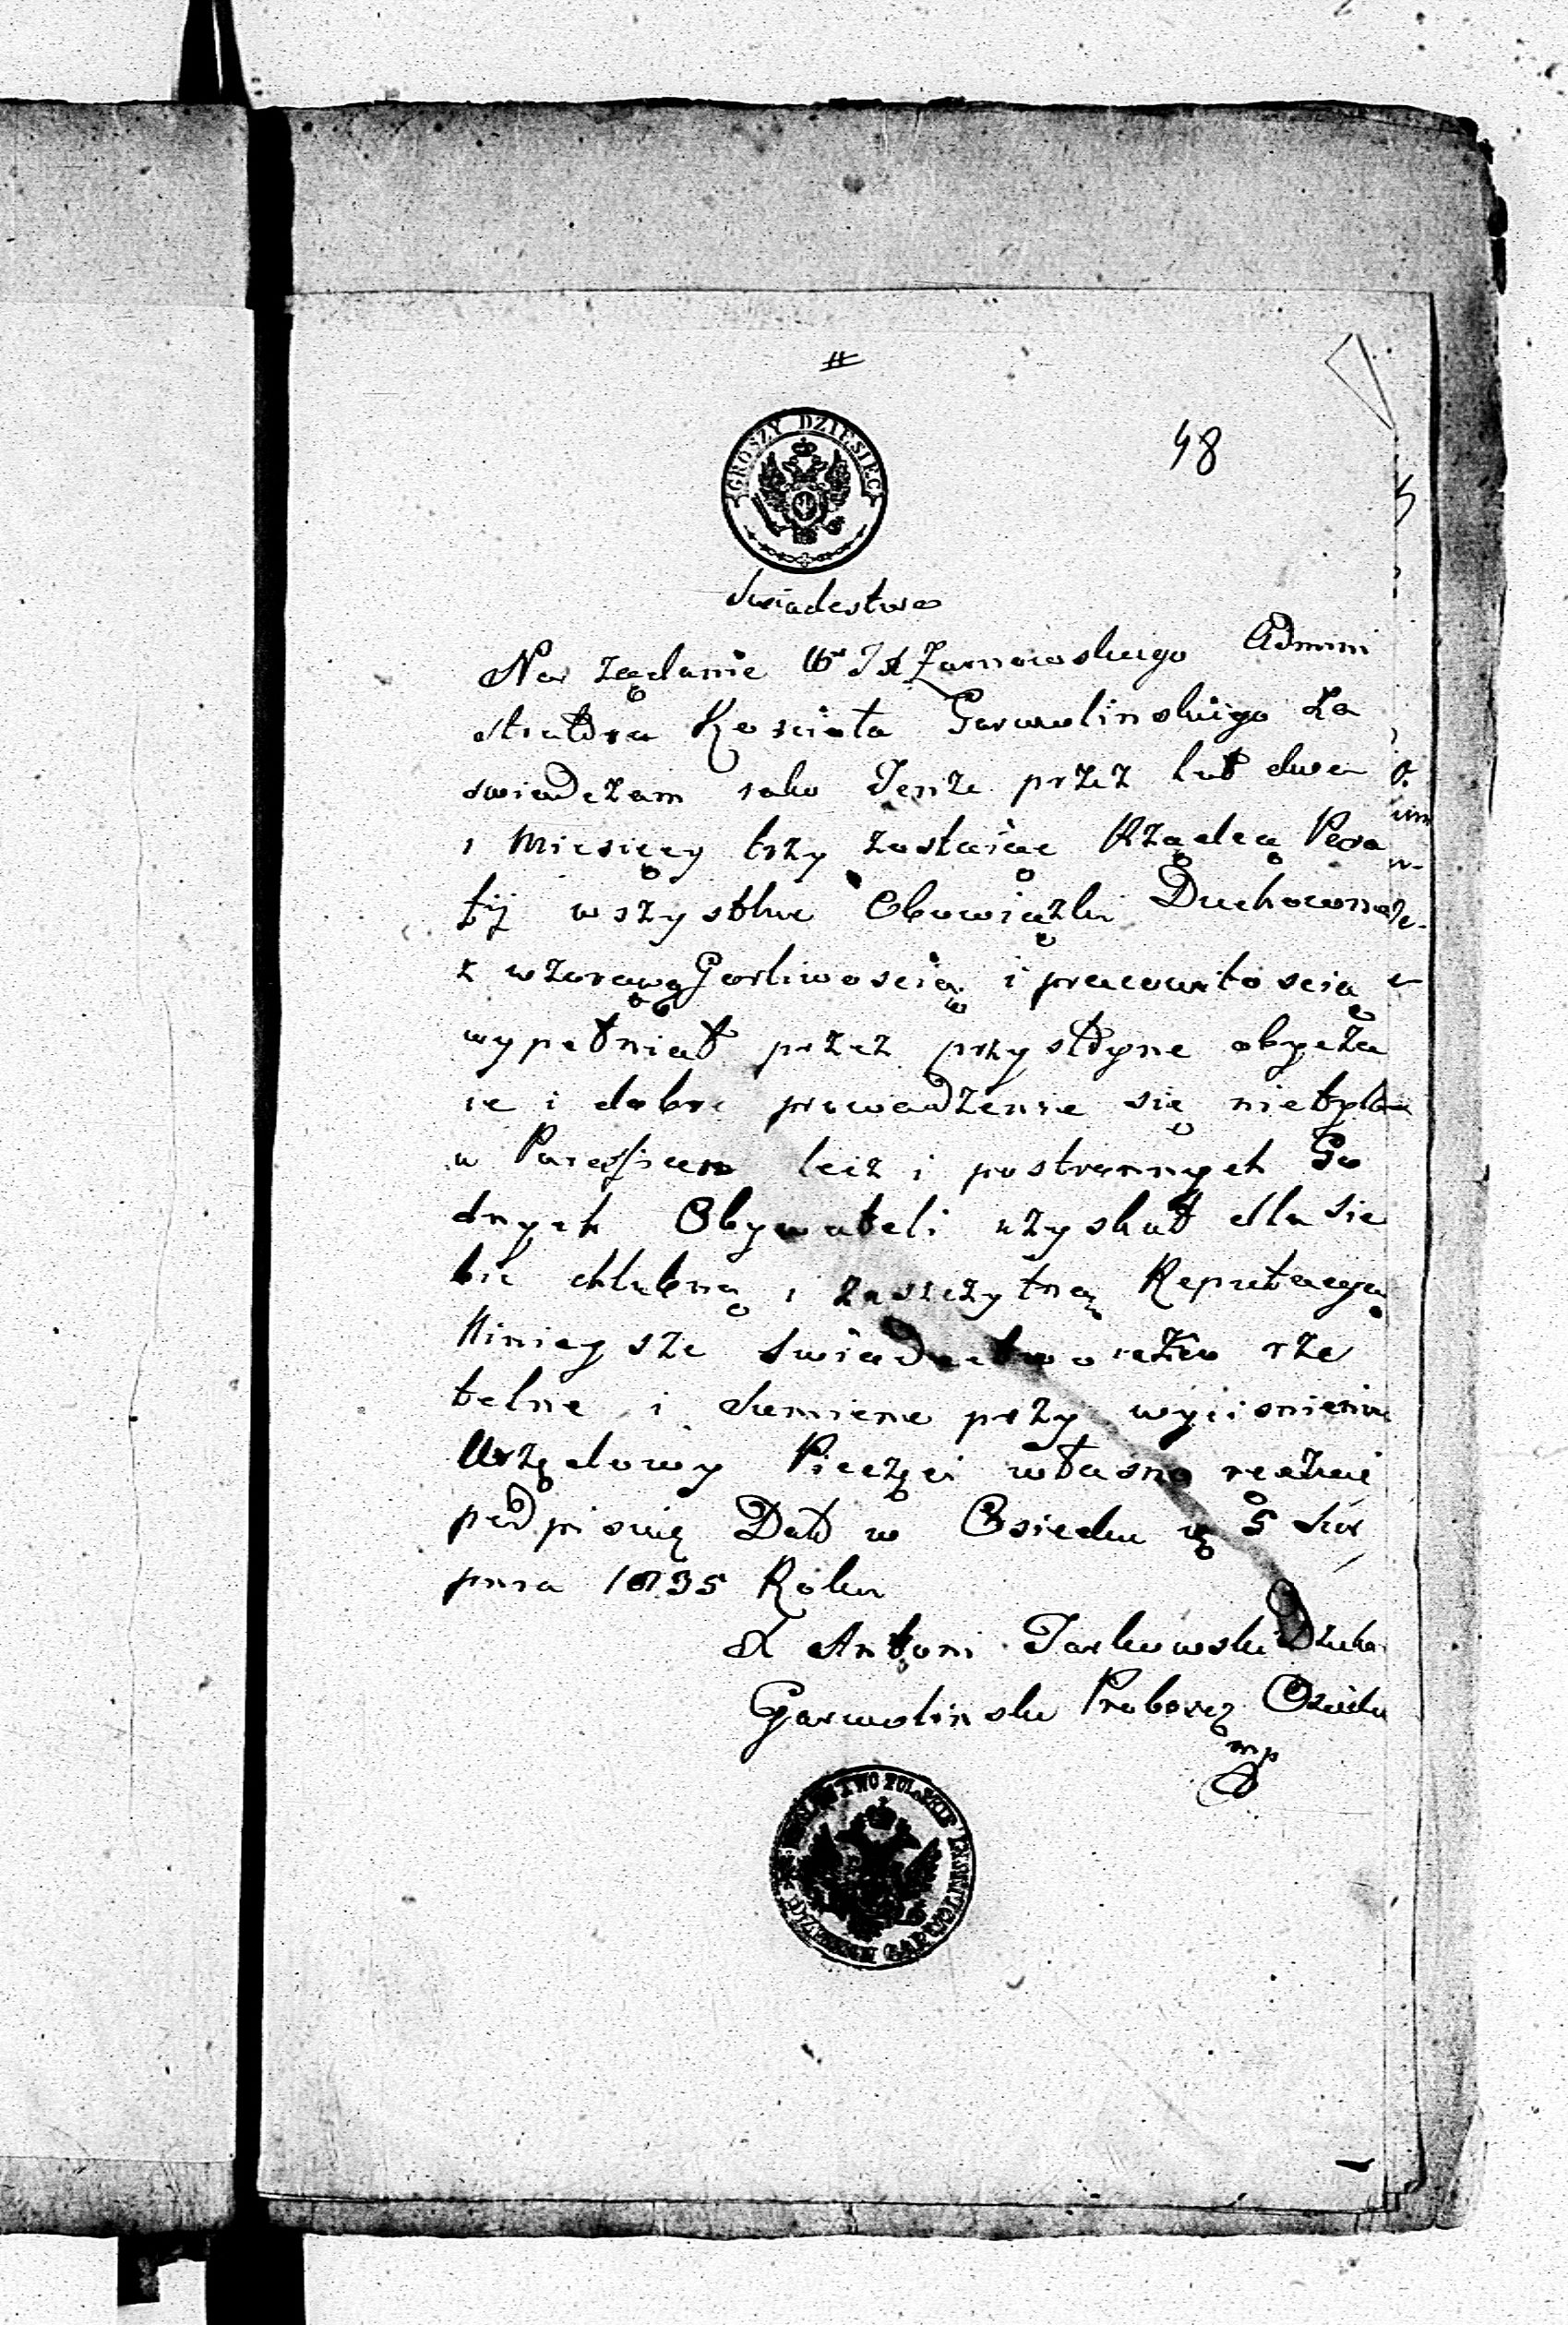 48
GROSZY DZIESIĘĆ
Swiadectwo
Na żądanie Żarnowskiego Admini
stratora Kościoła Garwolinskiego Za
swiadczam jako Tenże przez lat dwa
i Miesięcy trzy zostaiąc Rządcą Para
fij wszystkie Obowiązki Duchowne
z wzorową Gorliwoscią i pracowitoscią
wypełniał przez przystoyne obycza
ie i dobre prowadzenie się nietylko
u Parafian lecz i postronnych Go
dnych Obywateli uzyskał dla sie
bie chlubną i zaszczytną Reputacyą
Ninieysze Swiadectwo iako rze
telne i sumienne przy wycisnieniu
Urzędowy Pieczęci własno ręcznie
podpisuię Dat w Osiecku 5 Sier
pnia 1835 Roku
X Antoni Tarkowski Dzieka
Garwolinski Proboszcz Osiecki
mp